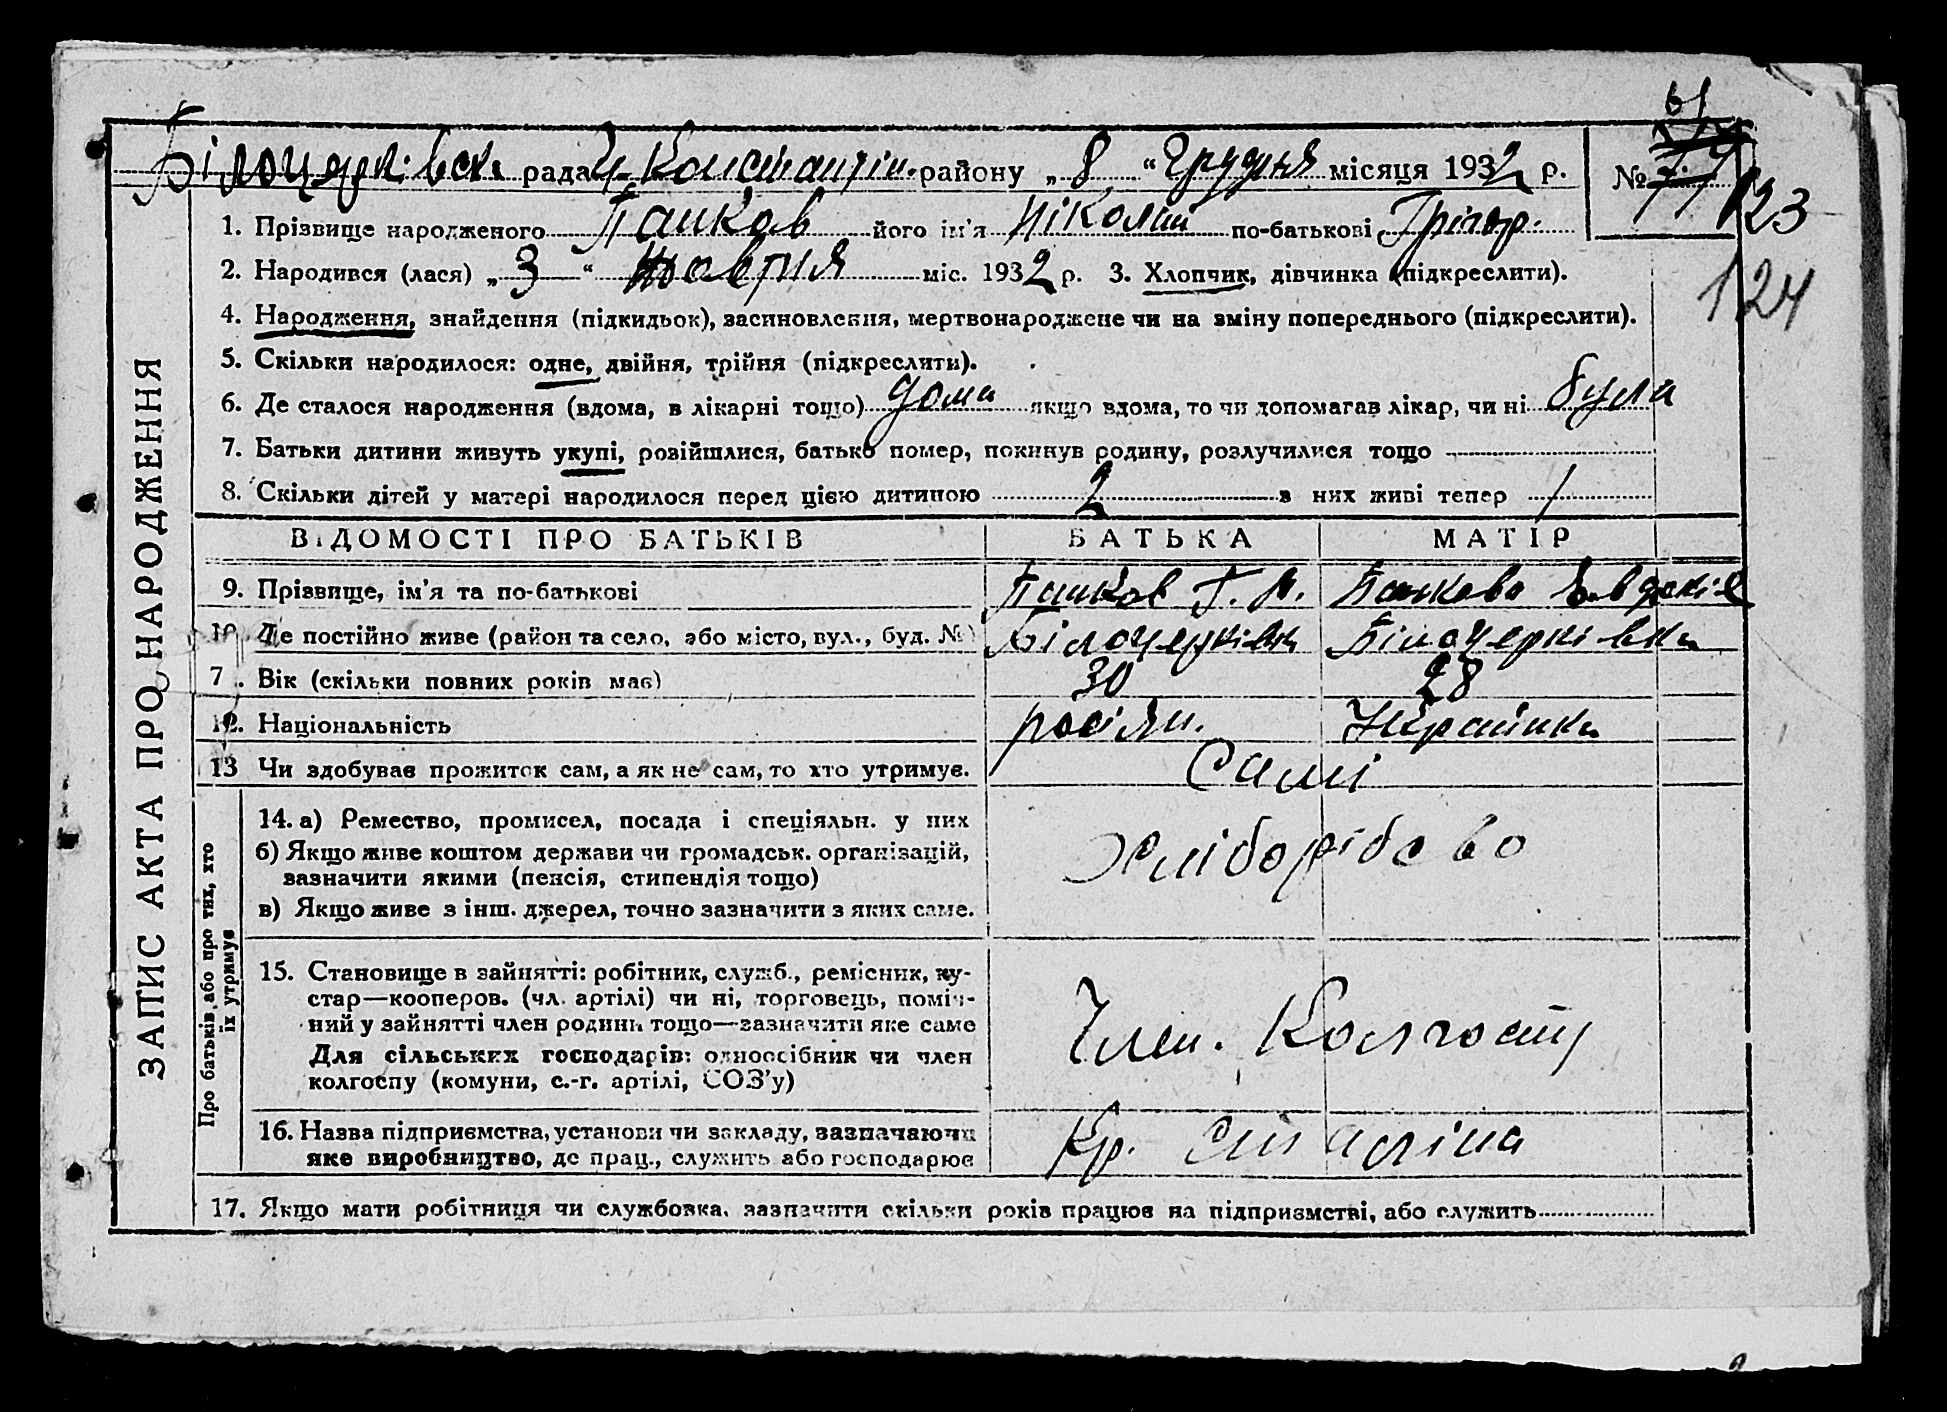 61
Білоцерківськ рада Ч. Константін. району „ 8 “ Грудня місяця 1932 р. № 77 123
1. Прізвище народженого Панков його ім'я Ніколай по-батькові Грігор.
2. Народився (лася) „ 3 “ Жовтня міс. 1932 р. 3. Хлопчик, дівчинка (підкреслити).
124
4. Народження, знайдення (підкидьок), засиновлення, мертвонароджене чи на зміну попереднього (підкреслити).
5. Скільки народилося: одне, двійня, трійня (підкреслити).
6. Де сталося народження (вдома, в лікарні тощо) дома якщо вдома, то чи допомагав лікар, чи ні була
7. Батьки дитини живуть укупі, розійшлися, батько помер, покинув родину, розлучилися тощо
8. Скільки дітей у матері народилося перед цією дитиною 2 з них живі тепер 1
ЗАПИС АКТА ПРО НАРОДЖЕННЯ
ВІДОМОСТІ ПРО БАТЬКІВ БАТЬКА МАТІР
9. Прізвище, ім'я та по-батькові Панков Г. Панкова Евдокія
10. Де постійно живе (район та село, або місто, вул., буд. №) Білоцерківка Білоцерківка
7 . Вік (скільки повних років має) 30 28
12. Національність росіян. Українка
13 Чи здобував прожиток сам, а як не сам, то хто утримує. Самі
Про батьків, або про тих, хто
їх утримує
14. а) Ремество, промисел, посада і спеціяльн. у них
б) Якщо живе коштом держави чи громадськ. організацій,
зазначити якими (пенсія, стипендія тощо)
в) Якщо живе з інш. джерел, точно зазначити з яких саме.
Хліборобство
15. Становище в зайнятті: робітник, служб., ремісник, ку-
стар—кооперов. (чл. артілі) чи ні, торговець, поміч-
ний у зайнятті член родини тощо—зазначити яке саме
Для сільських господарів: одноосібник чи член
колгоспу (комуни, с.-г. артілі, СОЗ'у)
Член. Колгоспу
16. Назва підприємства, установи чи закладу, зазначаючи
яке виробництво, де прац., служить або господарює
Кр. Сталіна
17. Якщо мати робітниця чи службовка, зазначити скільки років працює на підприємстві, або служить